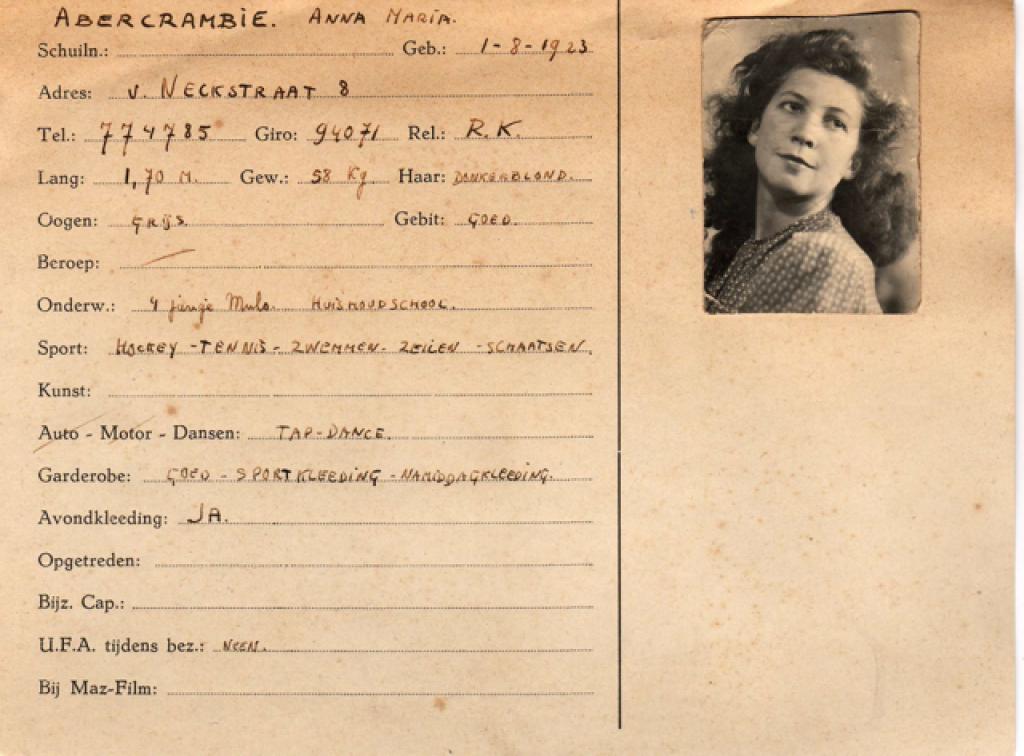 ABERCRAMBIE. ANNA MARIA.
Schuiln.: Geb.: 1-8-1923
Adres: v. NECKSTRAAT 8
Tel.: 774785 Giro: 94071 Rel.: R.K.
Lang: 1,70 M. Gew.: 58 Kg. Haar: DONKERBLOND.
Oogen: GRIJS. Gebit: GOED.
Beroep:
Onderw.: 4 jarige Mulo. HUISHOUDSCHOOL.
Sport: HOCKEY - TENNIS - ZWEMMEN - ZEILEN - SCHAATSEN.
Kunst:
Auto - Motor - Dansen: TAP-DANCE.
Garderobe: GOED - SPORTKLEEDING - NAMIDDAGKLEEDING.
Avondkleeding: JA.
Opgetreden:
Bijz. Cap.:
U.F.A. tijdens bez.: NEEN.
Bij Maz-Film: